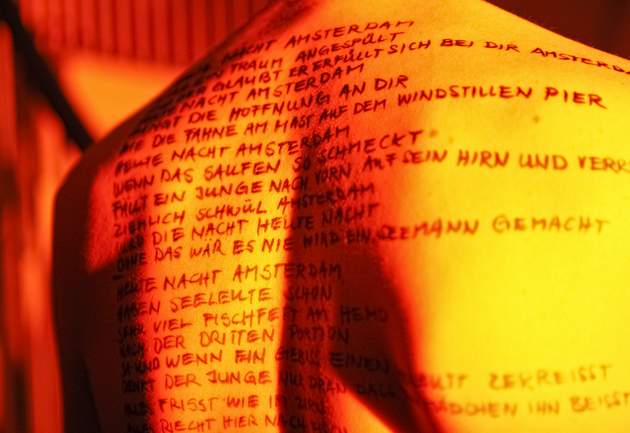 NACHT AMSTERDAM
TRAUM ANGESPÜLT
GLAUBT ER ERFÜLLT SICH BEI DIR AMSTERDAM
NACHT AMSTERDAM
DIE HOFFNUNG AN DIR
WIE DIE FAHNE AM MAST AUF DEM WINDSTILLEN PIER
HEUTE NACHT AMSTERDAM
WENN DAS SAUFEN SO SCHMECKT
FÄLLT EIN JUNGE NACH VORN AUF SEIN HIRN UND
ZIEMLICH SCHWÜL AMSTERDAM
WIRD DIE NACHT HEUTE NACHT
OHNE DAS WÄR ES NIE WIRD EIN SEEMANN GEMACHT
HEUTE NACHT AMSTERDAM
HABEN SEELEUTE SCHON
SEHR VIEL FISCHFETT AM HEMD
NACH DER DRITTEN PORTION
UND WENN EIN EINEN BUTT ZERREISST
DENKT DER JUNGE NUR DRAN DASS MÄDCHEN IHN BEISST
FRISST WIE IM
RIECHT HIER NACH